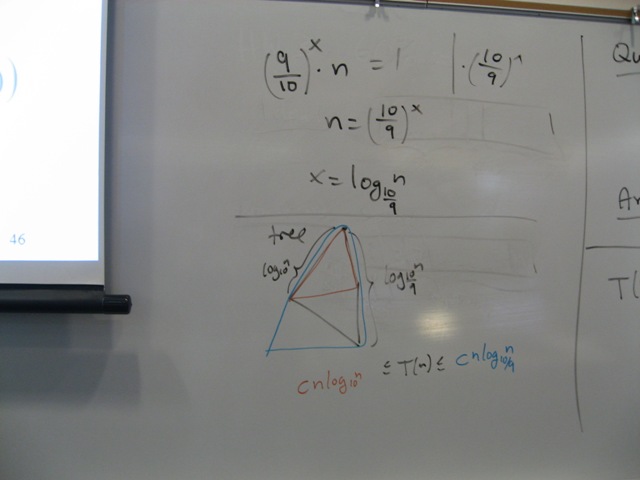 (9/10)^x · n = 1 | · (10/9)^n
n = (10/9)^x
x = log_{10/9} n
tree
log_{10} n
log_{10/9} n
cnlog_{10} n ≤ T(n) ≤ cnlog_{10/9} n
46
Qu
An
T(
)